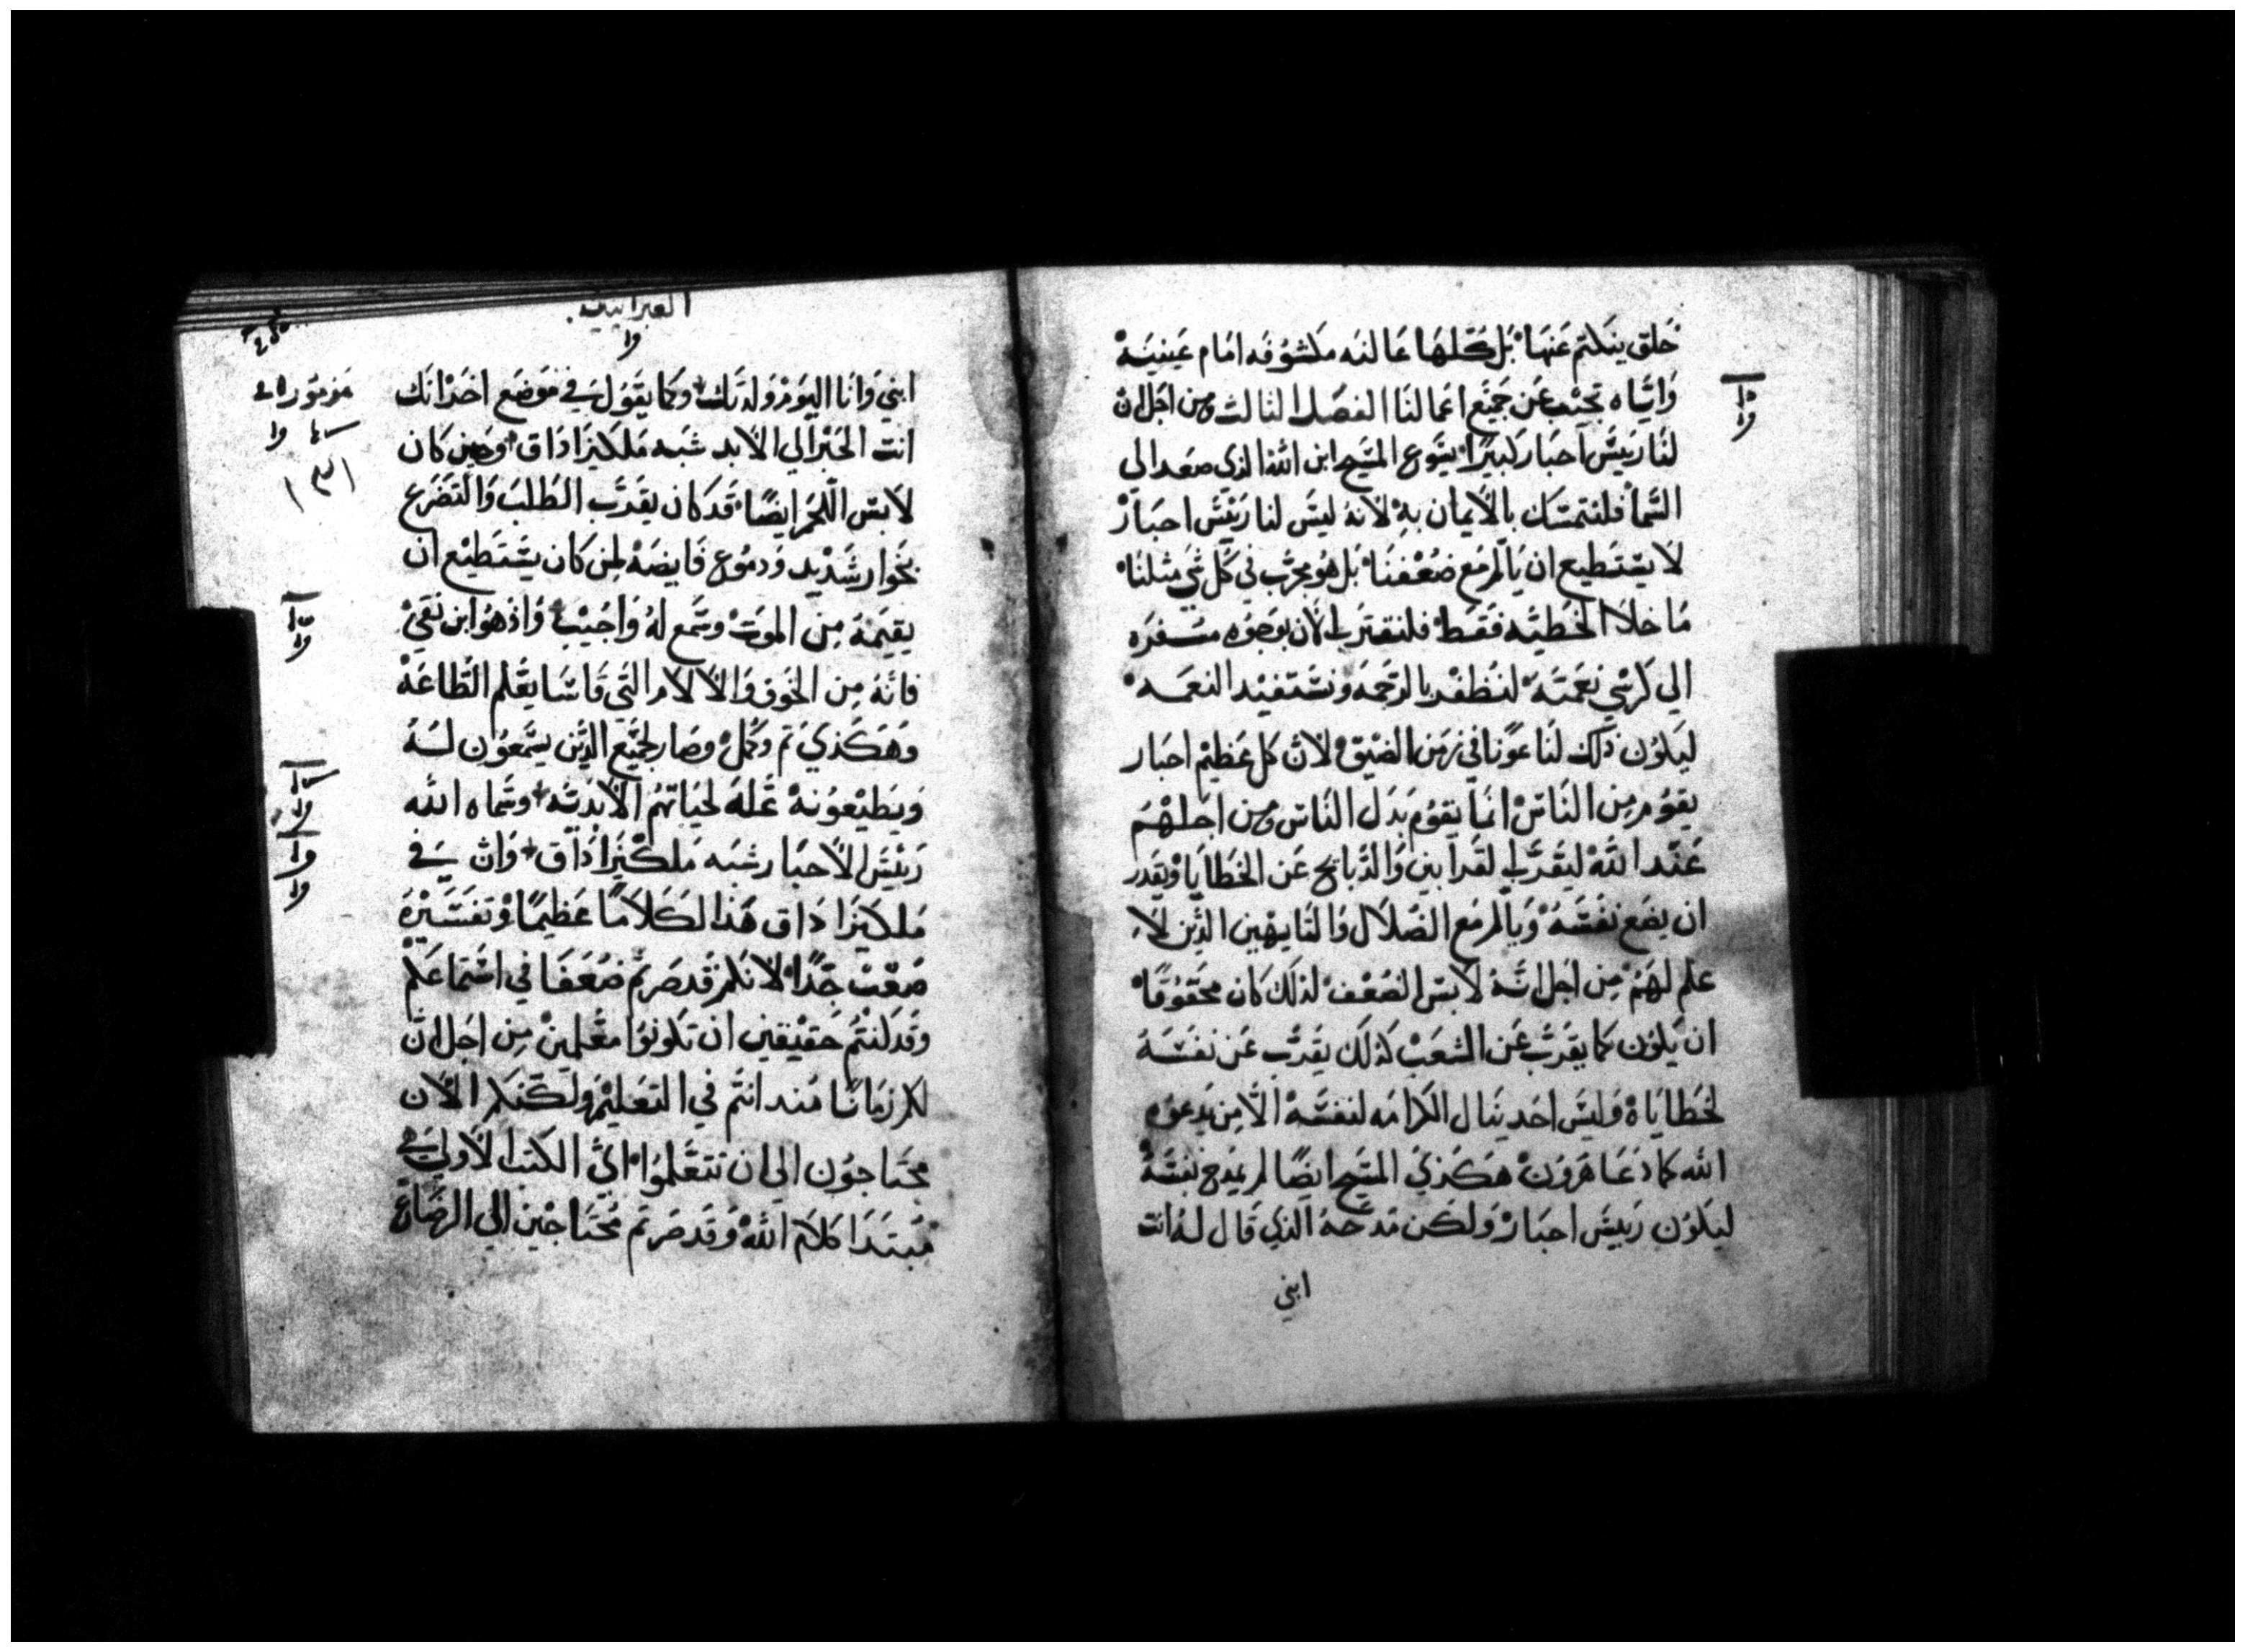 خلق ينكتم عنها بل كلها عالنه مكشوفه امام عينيه
واياه نجيب عن جميع اعمالنا الفصل الثالث ومن اجل ان
لنا رييس احبار كبيرا يسوع المسيح ابن الله الذي صعد الي
السما فلنتمسك بالايمان به لانه ليس لنا رييس احبار
لا يستطيع ان يالم مع ضعفنا بل هو مجرب في كل شي مثلنا
ما خلا الخطيه فقط فلنقترب الان بوجوه مسفره
الي كرسي نعمته لنظفر بالرحمه ونستفيد النعمه
ليكون ذلك لنا عونا في زمن الضيق لان كل عظيم احبار
يقوم من الناس انما يقوم بدل الناس ومن اجلهم
عند الله ليقرب القرابين والذبايح عن الخطايا ويقدر
ان يضع نفسه ويالم مع الضلال والتايهين الذين لا
علم لهم من اجل انه لابس الضعف لذلك كان محقوقا
ان يكون كما يقرب عن الشعب كذلك يقرب عن نفسه
لخطاياه وليس احد ينال الكرامه لنفسه الا من يدعوه
الله كما دعا هرون هكذي المسيح ايضا لم يمدح نفسه
ليكون رييس احبار ولكن مدحه الذي قال له انت
ابني
العبرانيين
ابني وانا اليوم ولدتك وكما يقول في موضع اخر انك
انت الحبر الي الابد شبه ملكيزاداق وحين كان
لابس اللحم ايضا قد كان يقرب الطلب والتضرع
بخوار شديد ودموع فايضه لمن كان يستطيع ان
يقيمه من الموت وسمع له واجيب واذ هو ابن نقي
فانه من الخوف والالام التي قاسا يعلم الطاعه
وهكذي تم وكمل وصار لجميع الذين يسمعون له
ويطيعونه علة لحياتهم الابديه وسماه الله
رييس الاحبار شبه ملكيزاداق وان في
ملكيزاداق هذا لكلاما عظيما وتفسيره
صعب جدا لانكم قد صرتم ضعفا في استماعكم
وقد كنتم حقيقين ان تكونوا معلمين من اجل ان
لكم زمانا منذ انتم في التعليم ولكنكم الان
محتاجون الي ان تتعلموا اي الكتب الاولي في
مبتدا كلام الله وقد صرتم محتاجين الي الرضاع